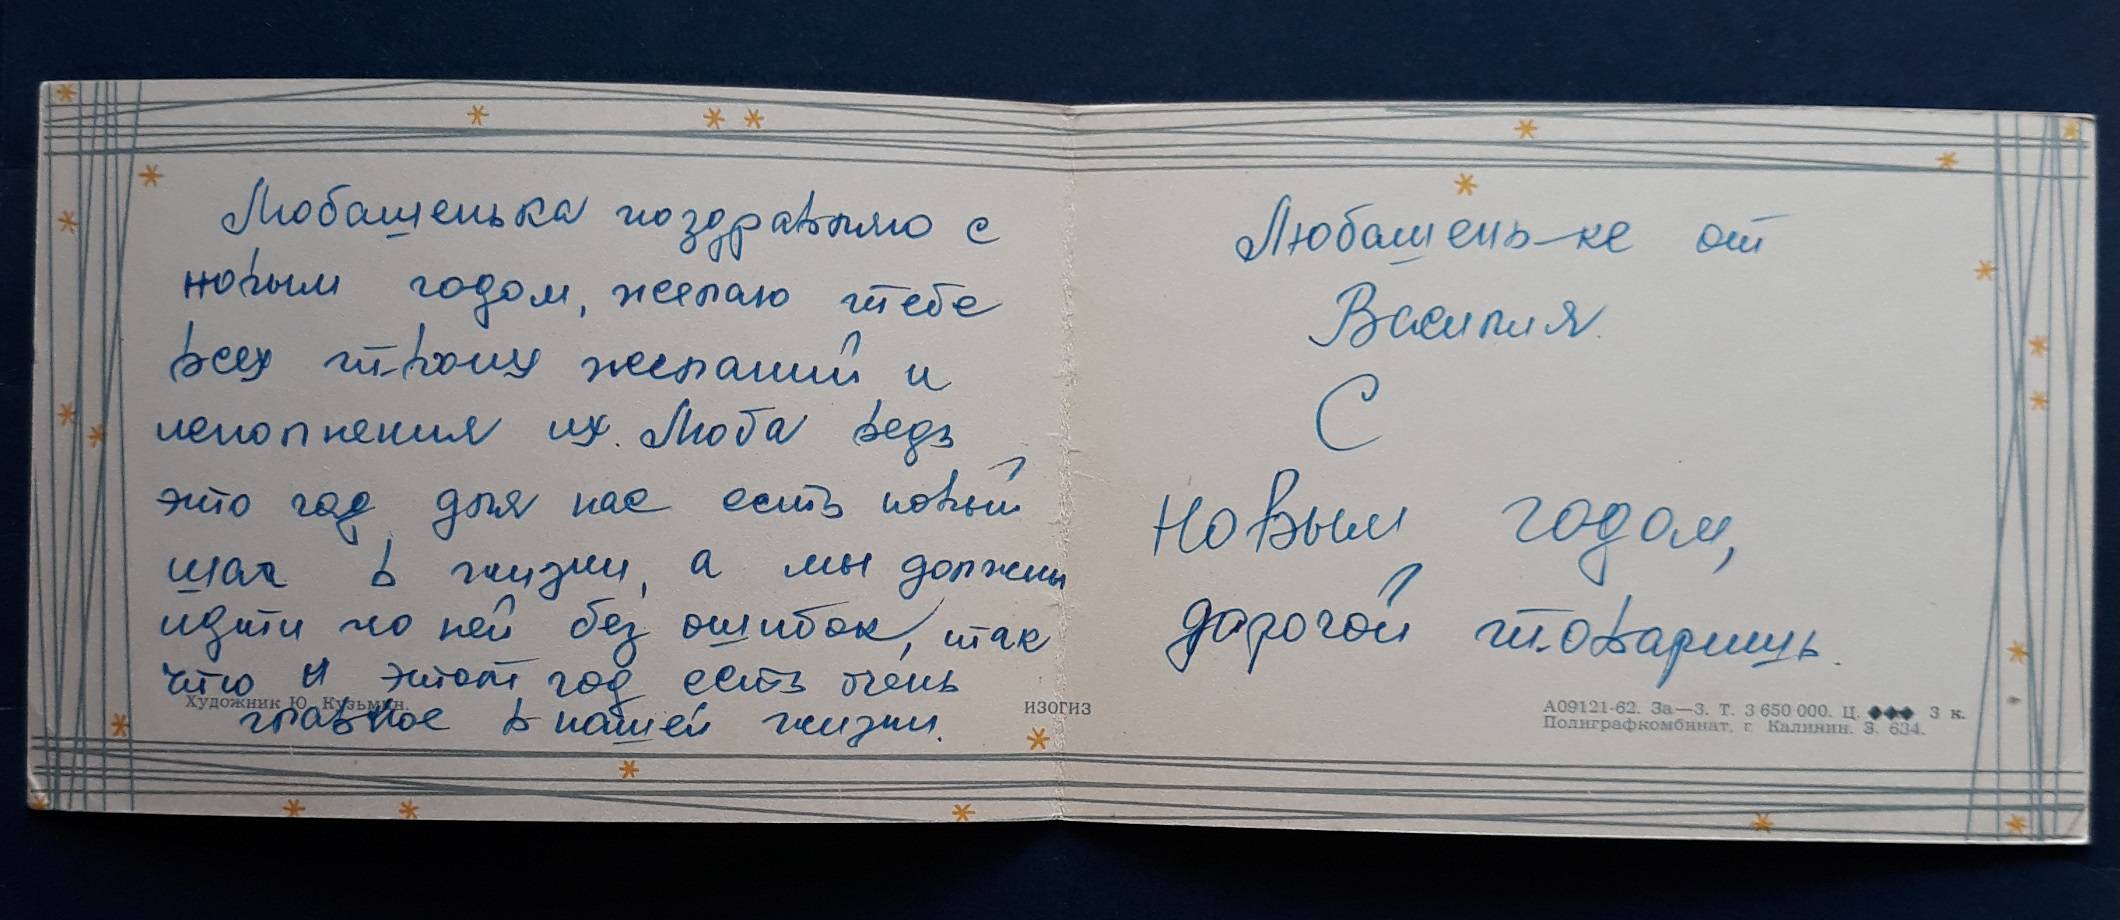 Любашенька поздравляю с
новым годом, желаю тебе
всех твоих желаний и
исполнения их. Люба ведь
это год для нас есть новый
шаг в жизни, а мы должны
идти по ней без ошибок, так
что и этот год есть очень
главное в нашей жизни.
Художник Ю. Кузьмин.
ИЗОГИЗ
Любашень-ке от
Василия.
С
Новым годом,
дорогой товарищь.
А09121-62. За—3. Т. 3 650 000. Ц. 3 к.
Полиграфкомбинат, г. Калинин. З. 634.